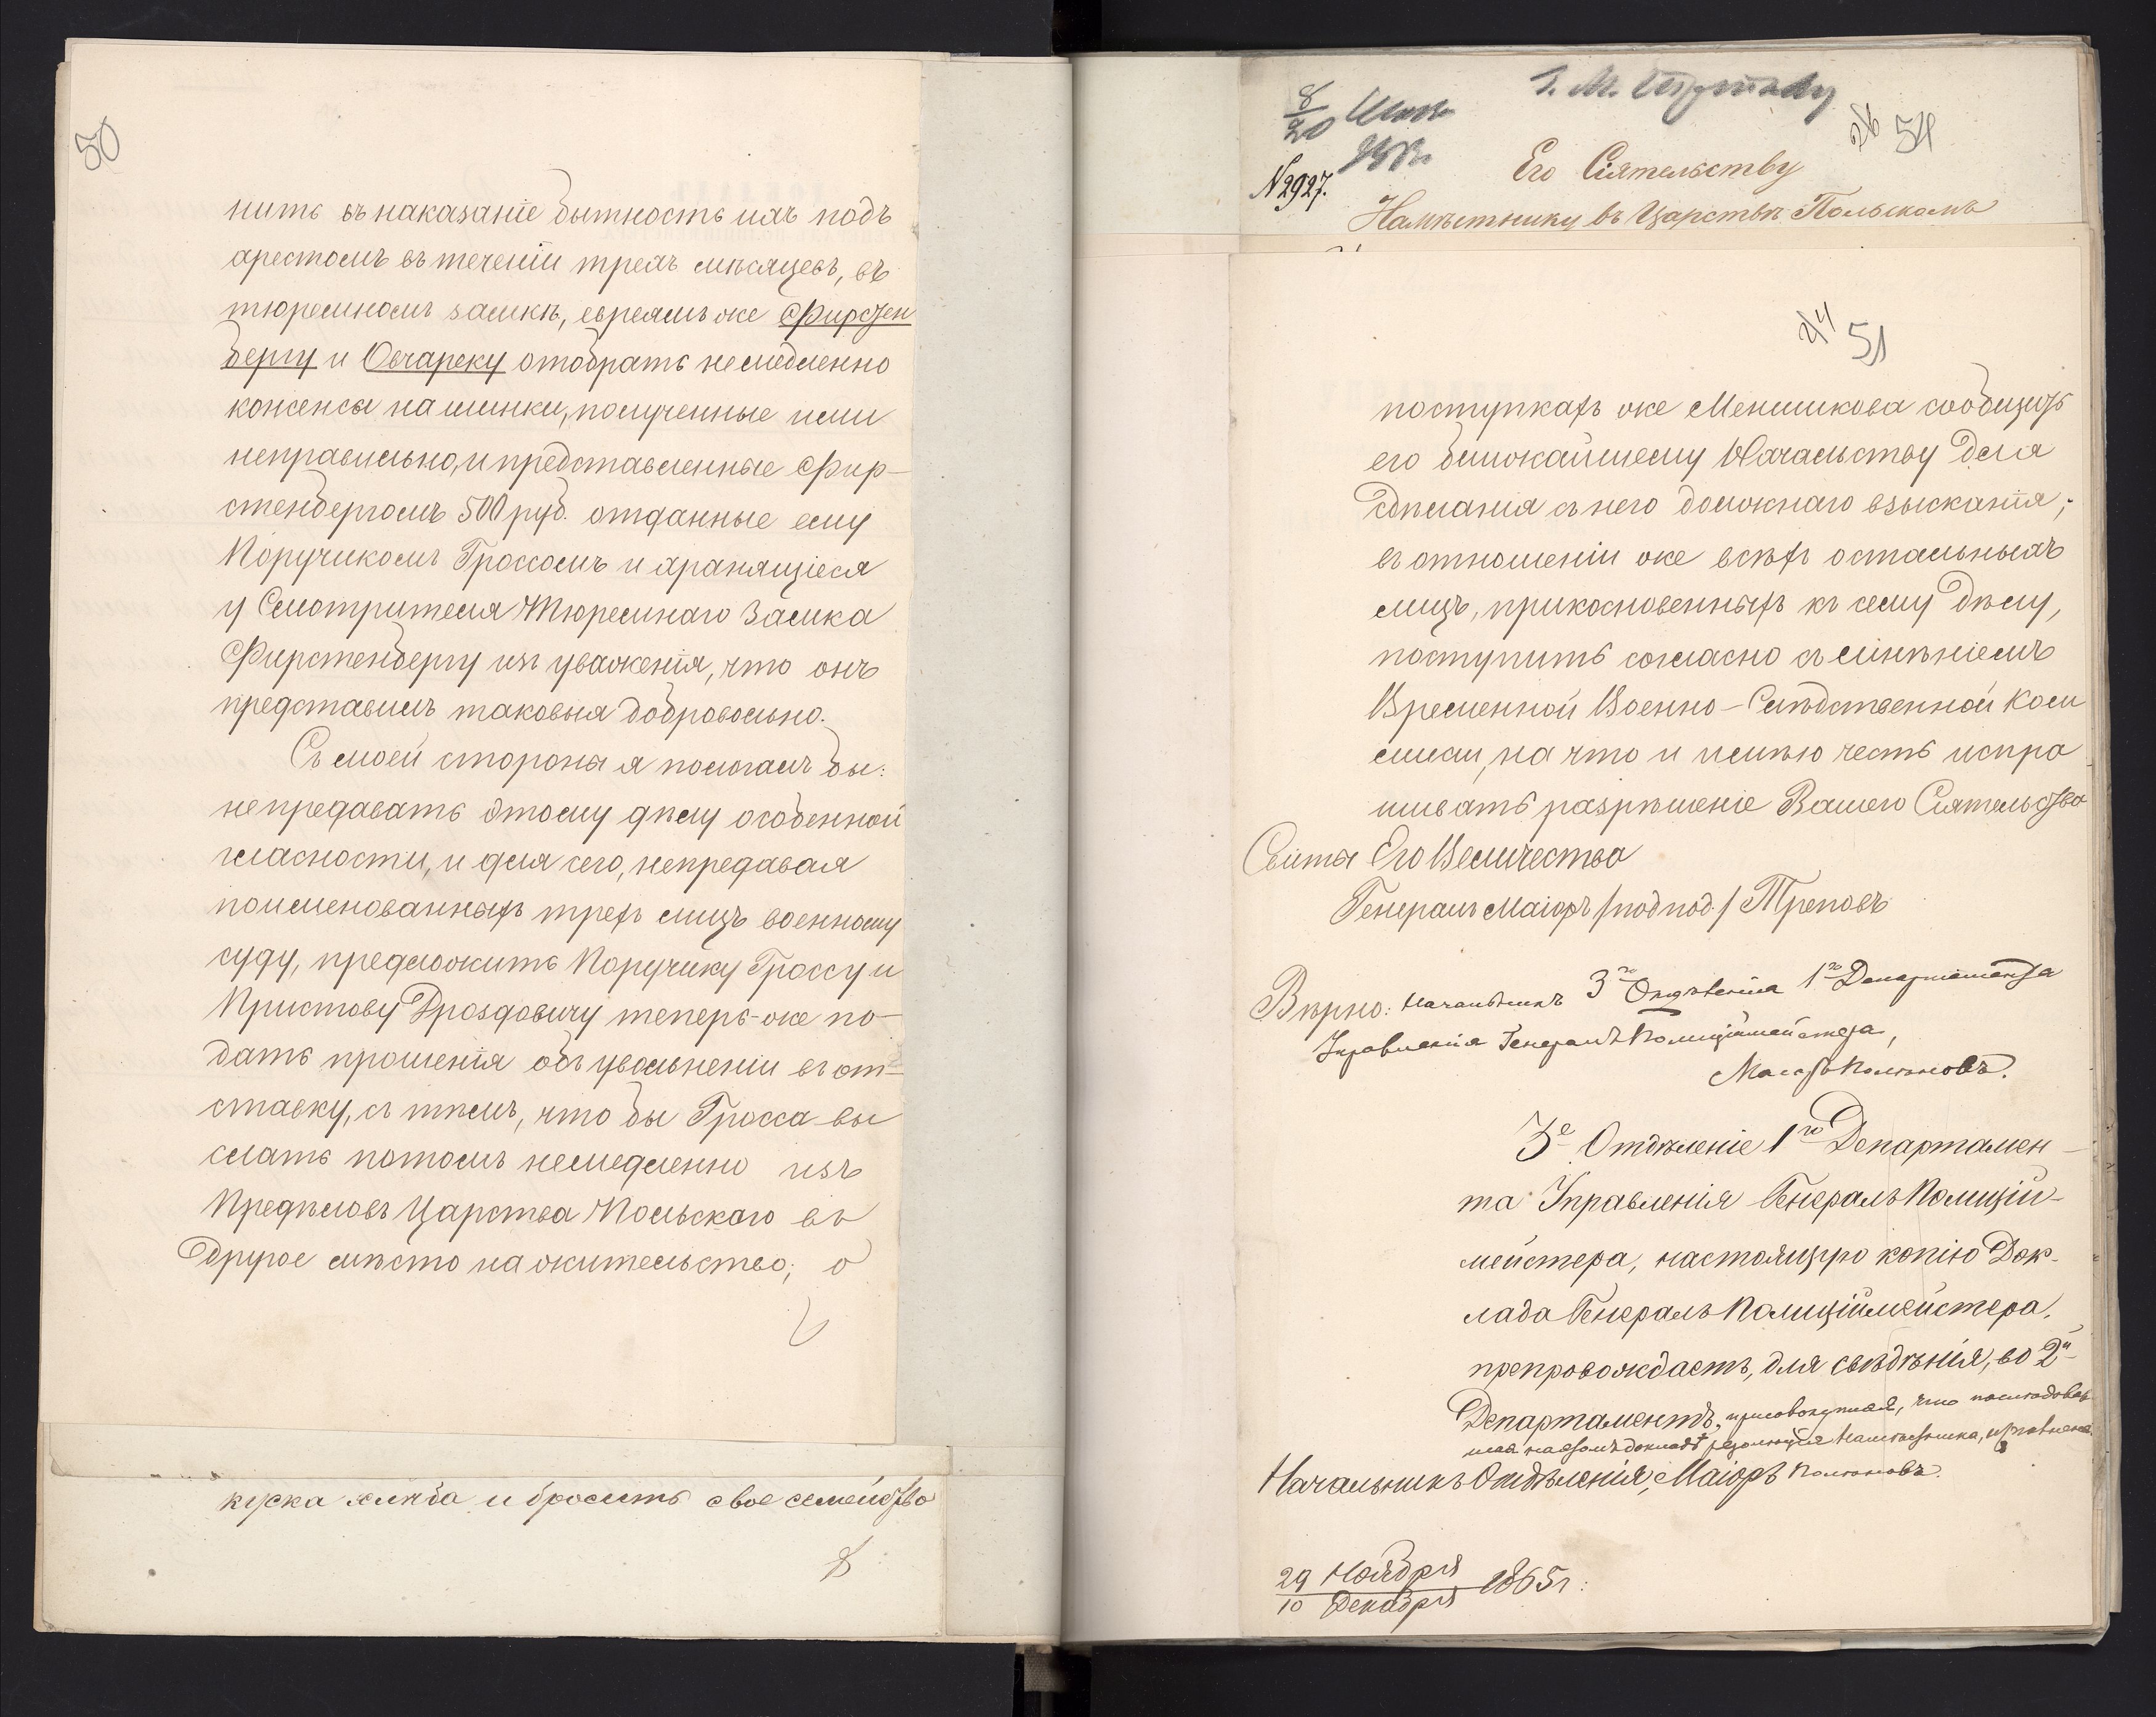 50
нить въ наказаніе бытность ихъ подъ
арестомъ въ теченіи трехъ мѣсяцевъ, въ
тюремномъ замкѣ, евреямъ же Фирстен
бергу и Овчареку отобрать немедленно
консенсы на шинки, полученные ими
неправильно, и представленные Фир-
стенбергомъ 500 руб. отданные ему
Поручикомъ Гроссомъ и хранящіеся
у Смотрителя Тюремнаго Замка
Фирстенбергу изъ уваженія, что онъ
представилъ таковыя добровольно.
Съ моей стороны я полагалъ бы:
непредавать этому дѣлу особенной
гласности, и для сего, непредавая
поименованныхъ трехъ лицъ военному
суду, предложить Поручику Гроссу и
Приставу Дроздовичу теперь-же по-
дать прошенія объ увольненіи въ от-
ставку, съ тѣмъ, что бы Гросса вы
слать потомъ немедленно изъ
Предѣловъ Царства Польскаго въ
другое мѣсто на жительство; о
куска хлѣба и бросить свое семейство
8/20
1865
№ 2927.
54
Его Сіятельству
Намѣстнику въ Царствѣ Польскомъ
51
поступкахъ же Меншикова сообщить
его ближайшему Начальству для
сдѣланія съ него должнаго взысканія;
въ отношеніи же всѣхъ остальныхъ
лицъ, прикосновенныхъ къ сему дѣлу,
поступить согласно съ мнѣніемъ
Временной Военно-Слѣдственной Ком
мисіи, на что и имѣю честь испра
шивать разрѣшеніе Вашего Сіятельства
Свиты Его Величества
Генералъ Маіоръ /подпод./ Треповъ
Вѣрно: Начальникъ 3го Отдѣленія 1го Департамента
Управленія Генералъ Полиціймейстера,
Маіоръ
3е Отдѣленіе 1го Департамен-
та Управленія Генералъ Полицій-
мейстера, настоящую копію Док-
лада Генералъ Полиціймейстера,
препровождаетъ, для свѣдѣнія, во 2й
Департаментъ, присовокупляя, что послѣдовав
шая на семъ докладѣ резолюція Намѣстника,
Начальникъ Отдѣленія, Маіоръ
29 Ноября / 10 Декабря 1865 г.